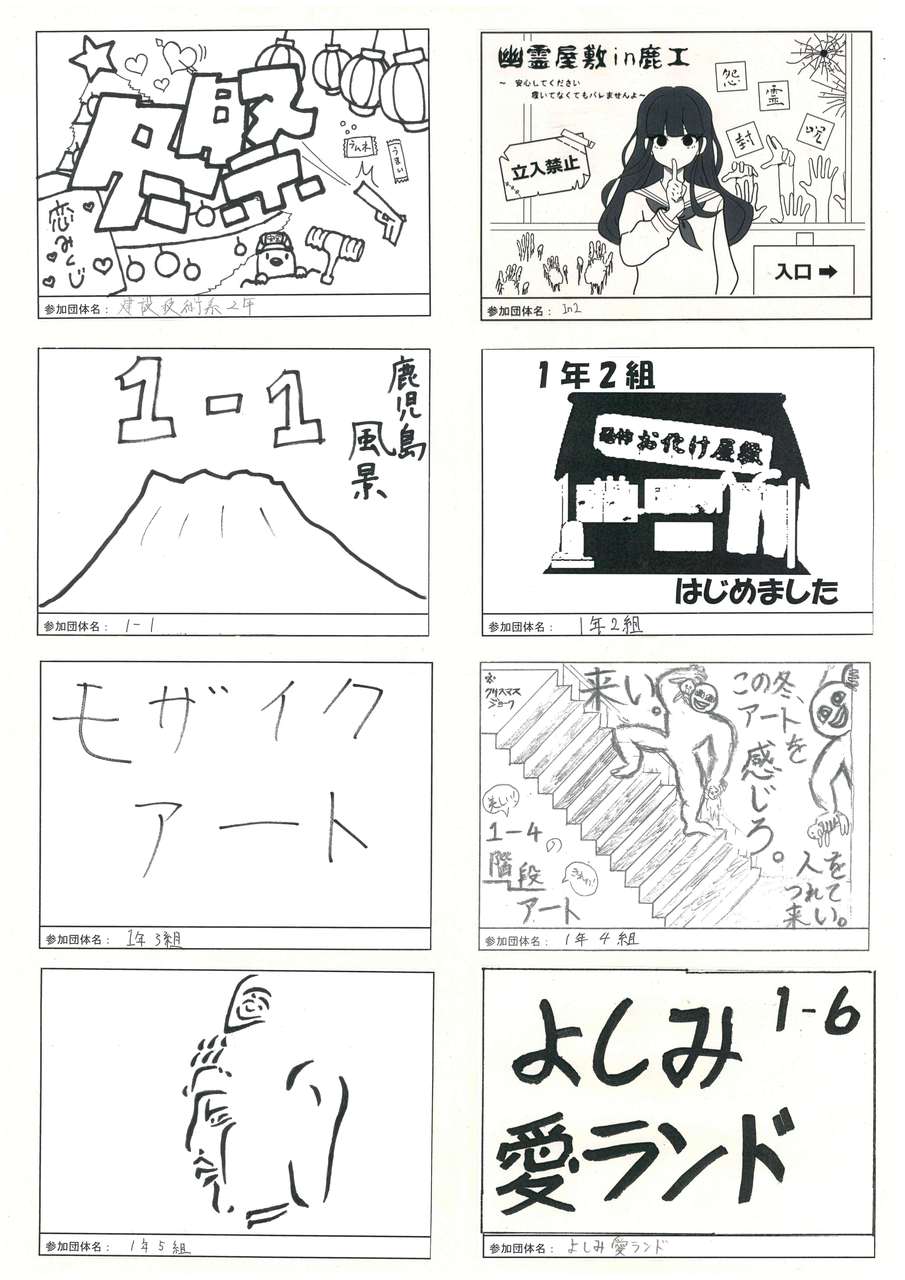 恋みくじ
ラムネ
参加団体名： 建設技術系2年
幽霊屋敷in鹿工
～ 安心してください
履いてなくてもバレませんよ～
怨
霊
封
呪
立入禁止
入口 ➡
参加団体名： In2
1-1
鹿児島
風景
参加団体名： 1-1
1年2組
恐怖 お化け屋敷
はじめました
参加団体名： 1年2組
モザイク
アート
参加団体名： 1年3組
※
クリスマス
ジョーク
来い。
この冬、
アートを
感じろ。
美しい!
1-4の
階段
アート
人を
つれて
来い。
参加団体名： 1年4組
参加団体名： 1年5組
1-6
よしみ
愛ランド
参加団体名： よしみ愛ランド